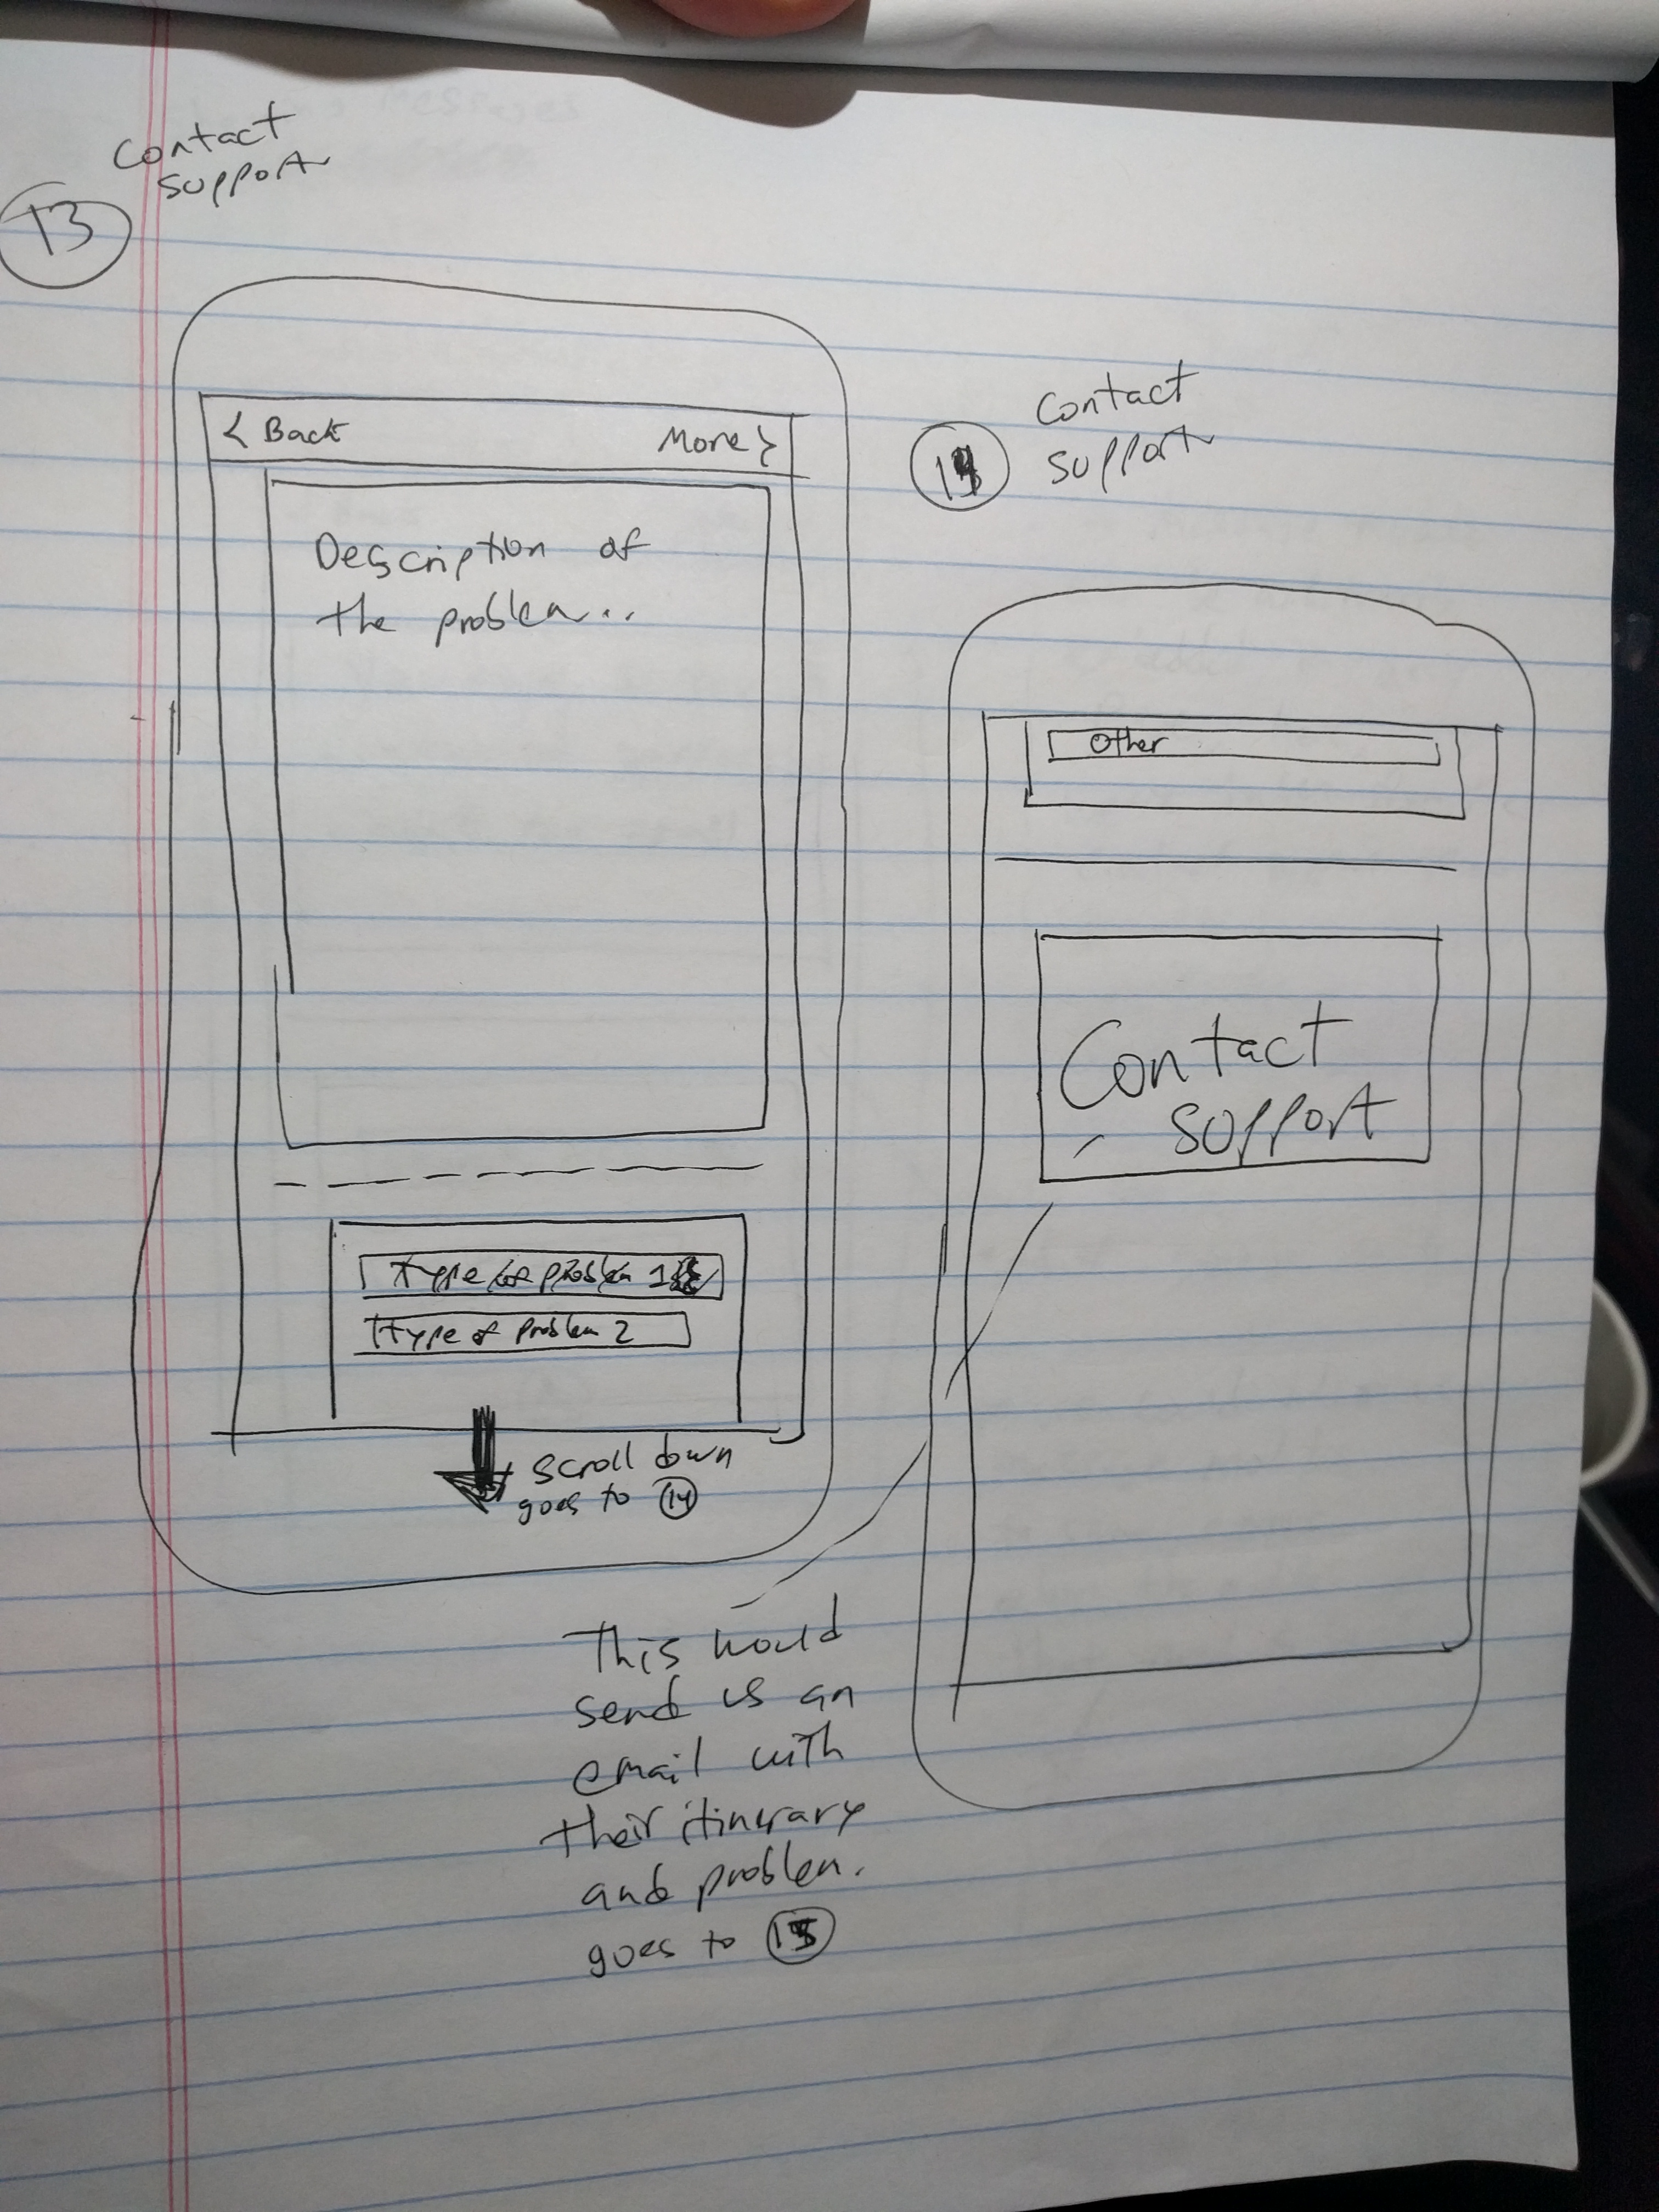 Contact
support
13
< Back More >
Description of
the problem...
Type of problem 1
Type of problem 2
scroll down
goes to 14
14
Contact
support
Other
Contact
support
This would
send us an
email with
their itinerary
and problem.
goes to 15